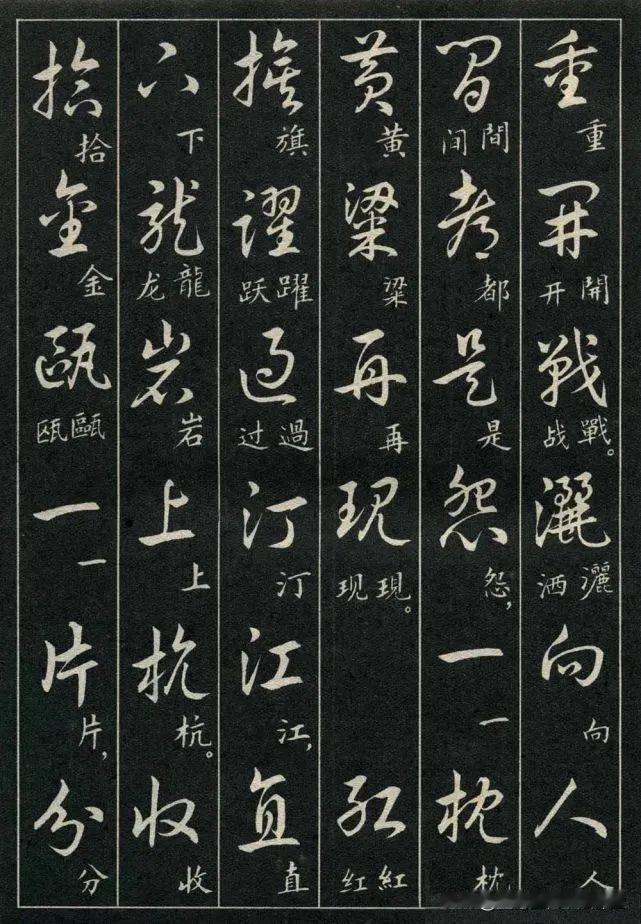 重開戰灑向人
重 開开 戰战。 灑洒 向 人
間都是怨一枕
間间 都 是 怨, 一 枕
黄粱再現 紅
黄 粱 再 現现。 紅红
旗躍過汀江直
旗 躍跃 過过 汀 江, 直
下龍岩上杭收
下 龍龙 岩 上 杭。 收
拾金甌一片分
拾 金 甌瓯 一 片, 分